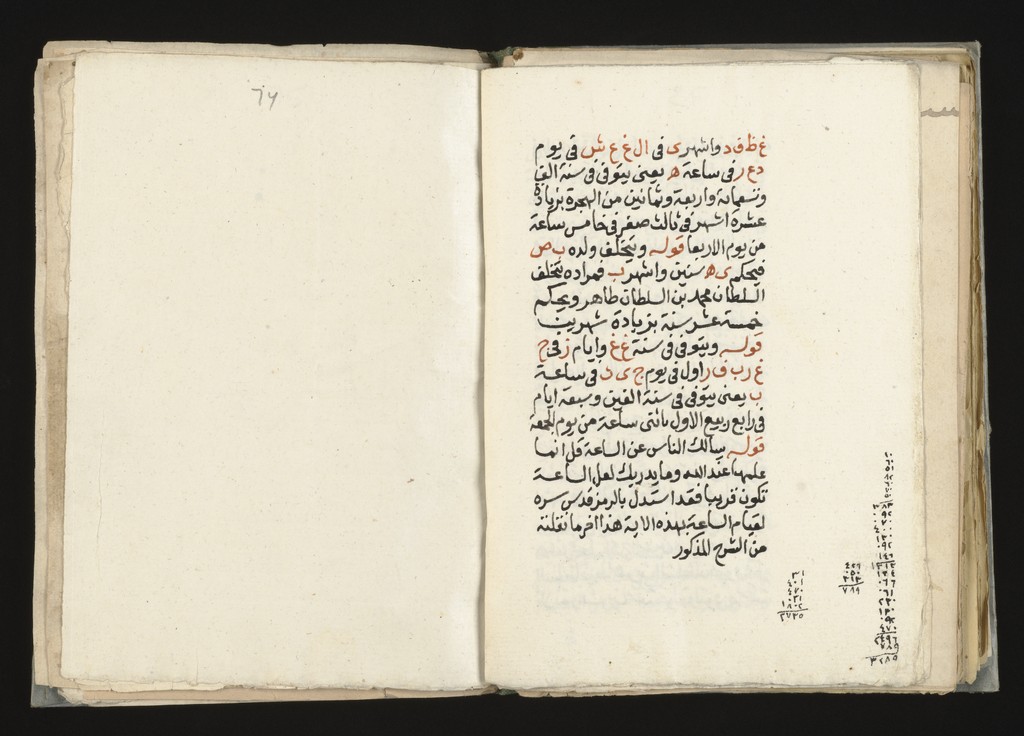 غ ظ ف د واشهر ى فى ال غ ع ش فى يوم
د ع ر فى ساعة ه يعنى يتوفى فى سنة الف
وتسعمائة واربعة وثمانين من الهجرة بزيادة
عشرة اشهر فى ثالث صفر فى خامس ساعة
من يوم الاربعا قوله ويتخلف ولده ب ص
فيحكم ى ه سنين واشهر ب فمراده يتخلف
السلطان محمد بن السلطان طاهر ويحكم
خمسة عشر سنة بزيادة شهرين
قوله ويتوفى فى سنة غ غ وايام ز فى ج
غ ر ب ف ر اول فى يوم ج ى د فى ساعة
ب يعنى يتوفى فى سنة الفين وسبعة ايام
فى رابع ربيع الاول ثانى ساعة من يوم الجمعة
قوله يسالك الناس عن الساعة قل انما
علمها عند الله وما يدريك لعل الساعة
تكون قريبا فقد استدل بالرمز قدس سره
لقيام الساعة بهذه الاية هذا اخر ما نقلته
من الشرح المذكور